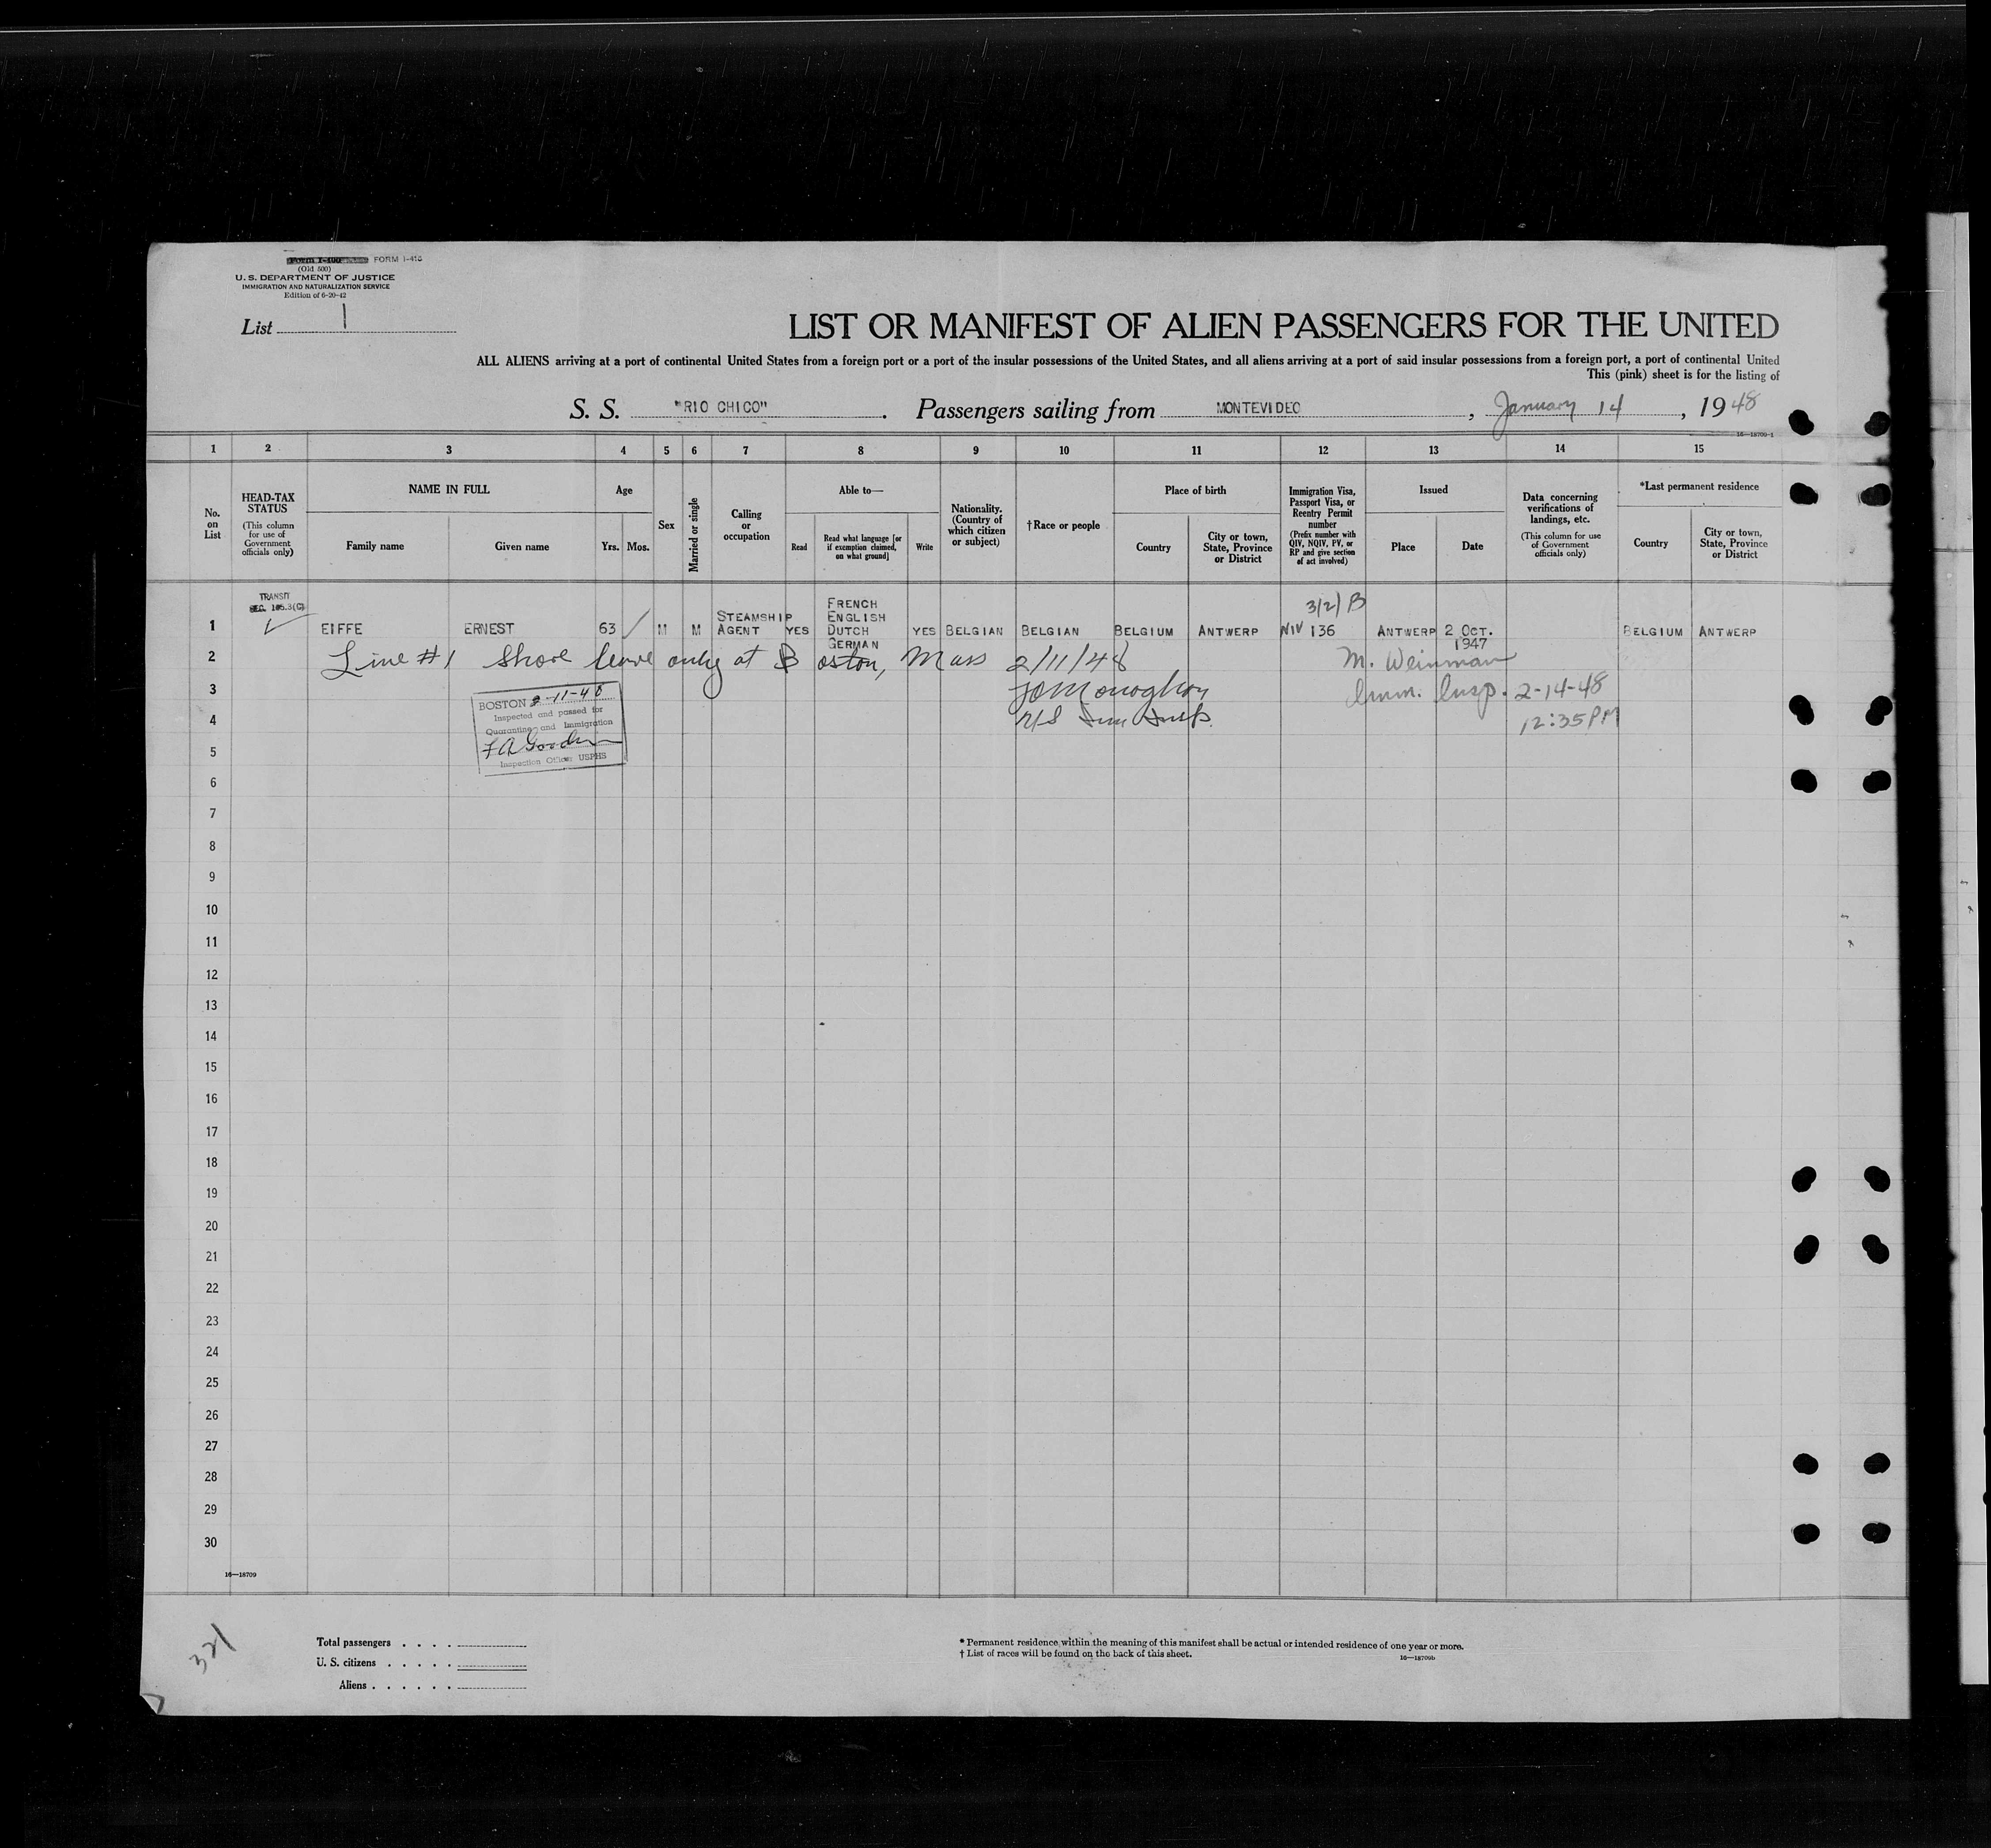 FORM I-415
(Old 500)
U. S. DEPARTMENT OF JUSTICE
IMMIGRATION AND NATURALIZATION SERVICE
Edition of 6-20-42
List 1
LIST OR MANIFEST OF ALIEN PASSENGERS FOR THE UNITED
ALL ALIENS arriving at a port of continental United States from a foreign port or a port of the insular possessions of the United States, and all aliens arriving at a port of said insular possessions from a foreign port, a port of continental United
This (pink) sheet is for the listing of
S. S. "RIO CHICO". Passengers sailing from MONTEVIDEO, January 14, 1948
16—18709-1
1 2 3 4 5 6 7 8 9 10 11 12 13 14 15
No. on List
HEAD-TAX STATUS
(This column for use of Government officials only)
NAME IN FULL
Family name
Given name
Age
Yrs. Mos.
Sex
Married or single
Calling or occupation
Able to—
Read
Read what language [or if exemption claimed, on what ground]
Write
Nationality. (Country of which citizen or subject)
†Race or people
Place of birth
Country
City or town, State, Province or District
Immigration Visa, Passport Visa, or Reentry Permit number
(Prefix number with QIV, NQIV, PV, or RP and give section of act involved)
Issued
Place
Date
Data concerning verifications of landings, etc.
(This column for use of Government officials only)
*Last permanent residence
Country
City or town, State, Province or District
TRANSIT
SEC. 105.3(C)
3(2) B
1 EIFFE ERNEST 63 M M STEAMSHIP AGENT YES FRENCH ENGLISH DUTCH GERMAN YES BELGIAN BELGIAN BELGIUM ANTWERP NIV 136 ANTWERP 2 OCT. 1947 BELGIUM ANTWERP
2 Line #1 Shore leave only at Boston, Mass 2/11/48 M. Weinman
3 JO Monaghan Imm. Insp. 2-14-48
4 12:35 PM
BOSTON 2-11-48
Inspected and passed for
Quarantine and Immigration
Inspection Officer USPHS
5
6
7
8
9
10
11
12
13
14
15
16
17
18
19
20
21
22
23
24
25
26
27
28
29
30
16—18709
321
Total passengers . . . .
U. S. citizens . . . . .
Aliens . . . . . .
* Permanent residence within the meaning of this manifest shall be actual or intended residence of one year or more.
† List of races will be found on the back of this sheet.
16—18709b